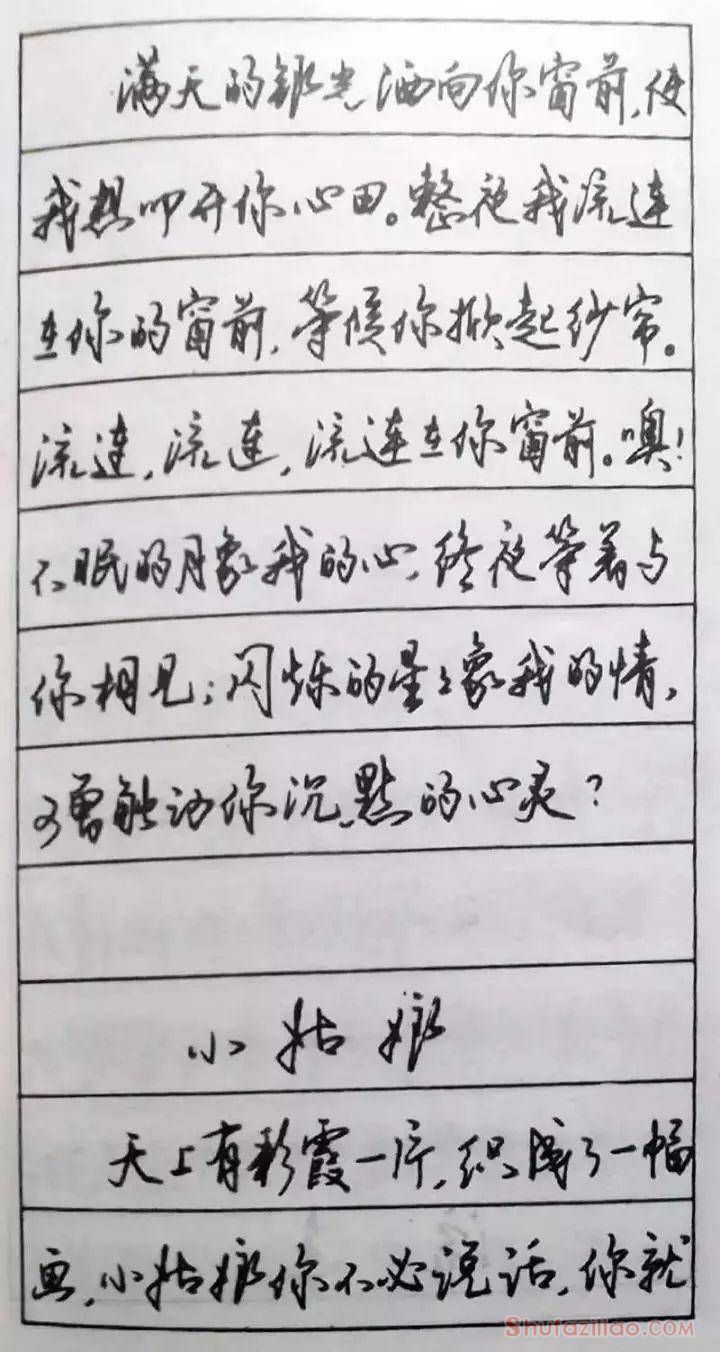 满天的银光洒向你窗前,使
我想叩开你心田。整夜我流连
在你的窗前,等候你掀起纱帘。
流连,流连,流连在你窗前。噢!
不眠的月象我的心,终夜等着与
你相见;闪烁的星星象我的情,
可曾触动你沉默的心灵?
小姑娘
天上有彩霞一片,织成了一幅
画,小姑娘你不必说话,你就
Shufaziliao.com